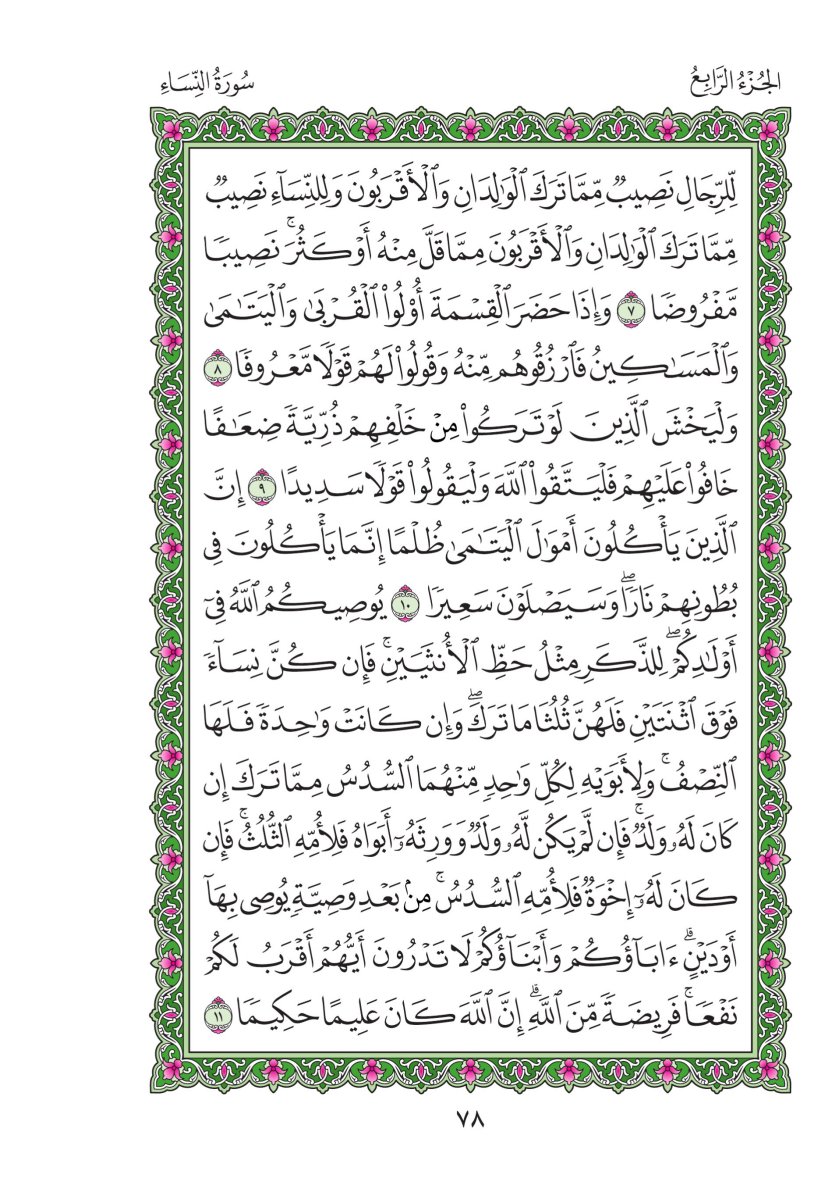 الجُزْءُ الرَّابِعُ
سُورَةُ النِّسَاءِ
لِّلرِّجَالِ نَصِيبٌ مِّمَّا تَرَكَ ٱلْوَٰلِدَانِ وَٱلْأَقْرَبُونَ وَلِلنِّسَآءِ نَصِيبٌ
مِّمَّا تَرَكَ ٱلْوَٰلِدَانِ وَٱلْأَقْرَبُونَ مِمَّا قَلَّ مِنْهُ أَوْ كَثُرَۚ نَصِيبًا
مَّفْرُوضًا ٧ وَإِذَا حَضَرَ ٱلْقِسْمَةَ أُوْلُواْ ٱلْقُرْبَىٰ وَٱلْيَتَٰمَىٰ
وَٱلْمَسَٰكِينُ فَٱرْزُقُوهُم مِّنْهُ وَقُولُواْ لَهُمْ قَوْلًا مَّعْرُوفًا ٨
وَلْيَخْشَ ٱلَّذِينَ لَوْ تَرَكُواْ مِنْ خَلْفِهِمْ ذُرِّيَّةً ضِعَٰفًا
خَافُواْ عَلَيْهِمْ فَلْيَتَّقُواْ ٱللَّهَ وَلْيَقُولُواْ قَوْلًا سَدِيدًا ٩ إِنَّ
ٱلَّذِينَ يَأْكُلُونَ أَمْوَٰلَ ٱلْيَتَٰمَىٰ ظُلْمًا إِنَّمَا يَأْكُلُونَ فِى
بُطُونِهِمْ نَارًاۖ وَسَيَصْلَوْنَ سَعِيرًا ١٠ يُوصِيكُمُ ٱللَّهُ فِىٓ
أَوْلَٰدِكُمْۖ لِلذَّكَرِ مِثْلُ حَظِّ ٱلْأُنثَيَيْنِۚ فَإِن كُنَّ نِسَآءً
فَوْقَ ٱثْنَتَيْنِ فَلَهُنَّ ثُلُثَا مَا تَرَكَۖ وَإِن كَانَتْ وَٰحِدَةً فَلَهَا
ٱلنِّصْفُۚ وَلِأَبَوَيْهِ لِكُلِّ وَٰحِدٍ مِّنْهُمَا ٱلسُّدُسُ مِمَّا تَرَكَ إِن
كَانَ لَهُۥ وَلَدٌۚ فَإِن لَّمْ يَكُن لَّهُۥ وَلَدٌ وَوَرِثَهُۥٓ أَبَوَاهُ فَلِأُمِّهِ ٱلثُّلُثُۚ فَإِن
كَانَ لَهُۥٓ إِخْوَةٌ فَلِأُمِّهِ ٱلسُّدُسُۚ مِنۢ بَعْدِ وَصِيَّةٍ يُوصِى بِهَآ
أَوْ دَيْنٍۗ ءَابَآؤُكُمْ وَأَبْنَآؤُكُمْ لَا تَدْرُونَ أَيُّهُمْ أَقْرَبُ لَكُمْ
نَفْعًاۚ فَرِيضَةً مِّنَ ٱللَّهِۗ إِنَّ ٱللَّهَ كَانَ عَلِيمًا حَكِيمًا ١١
٧٨